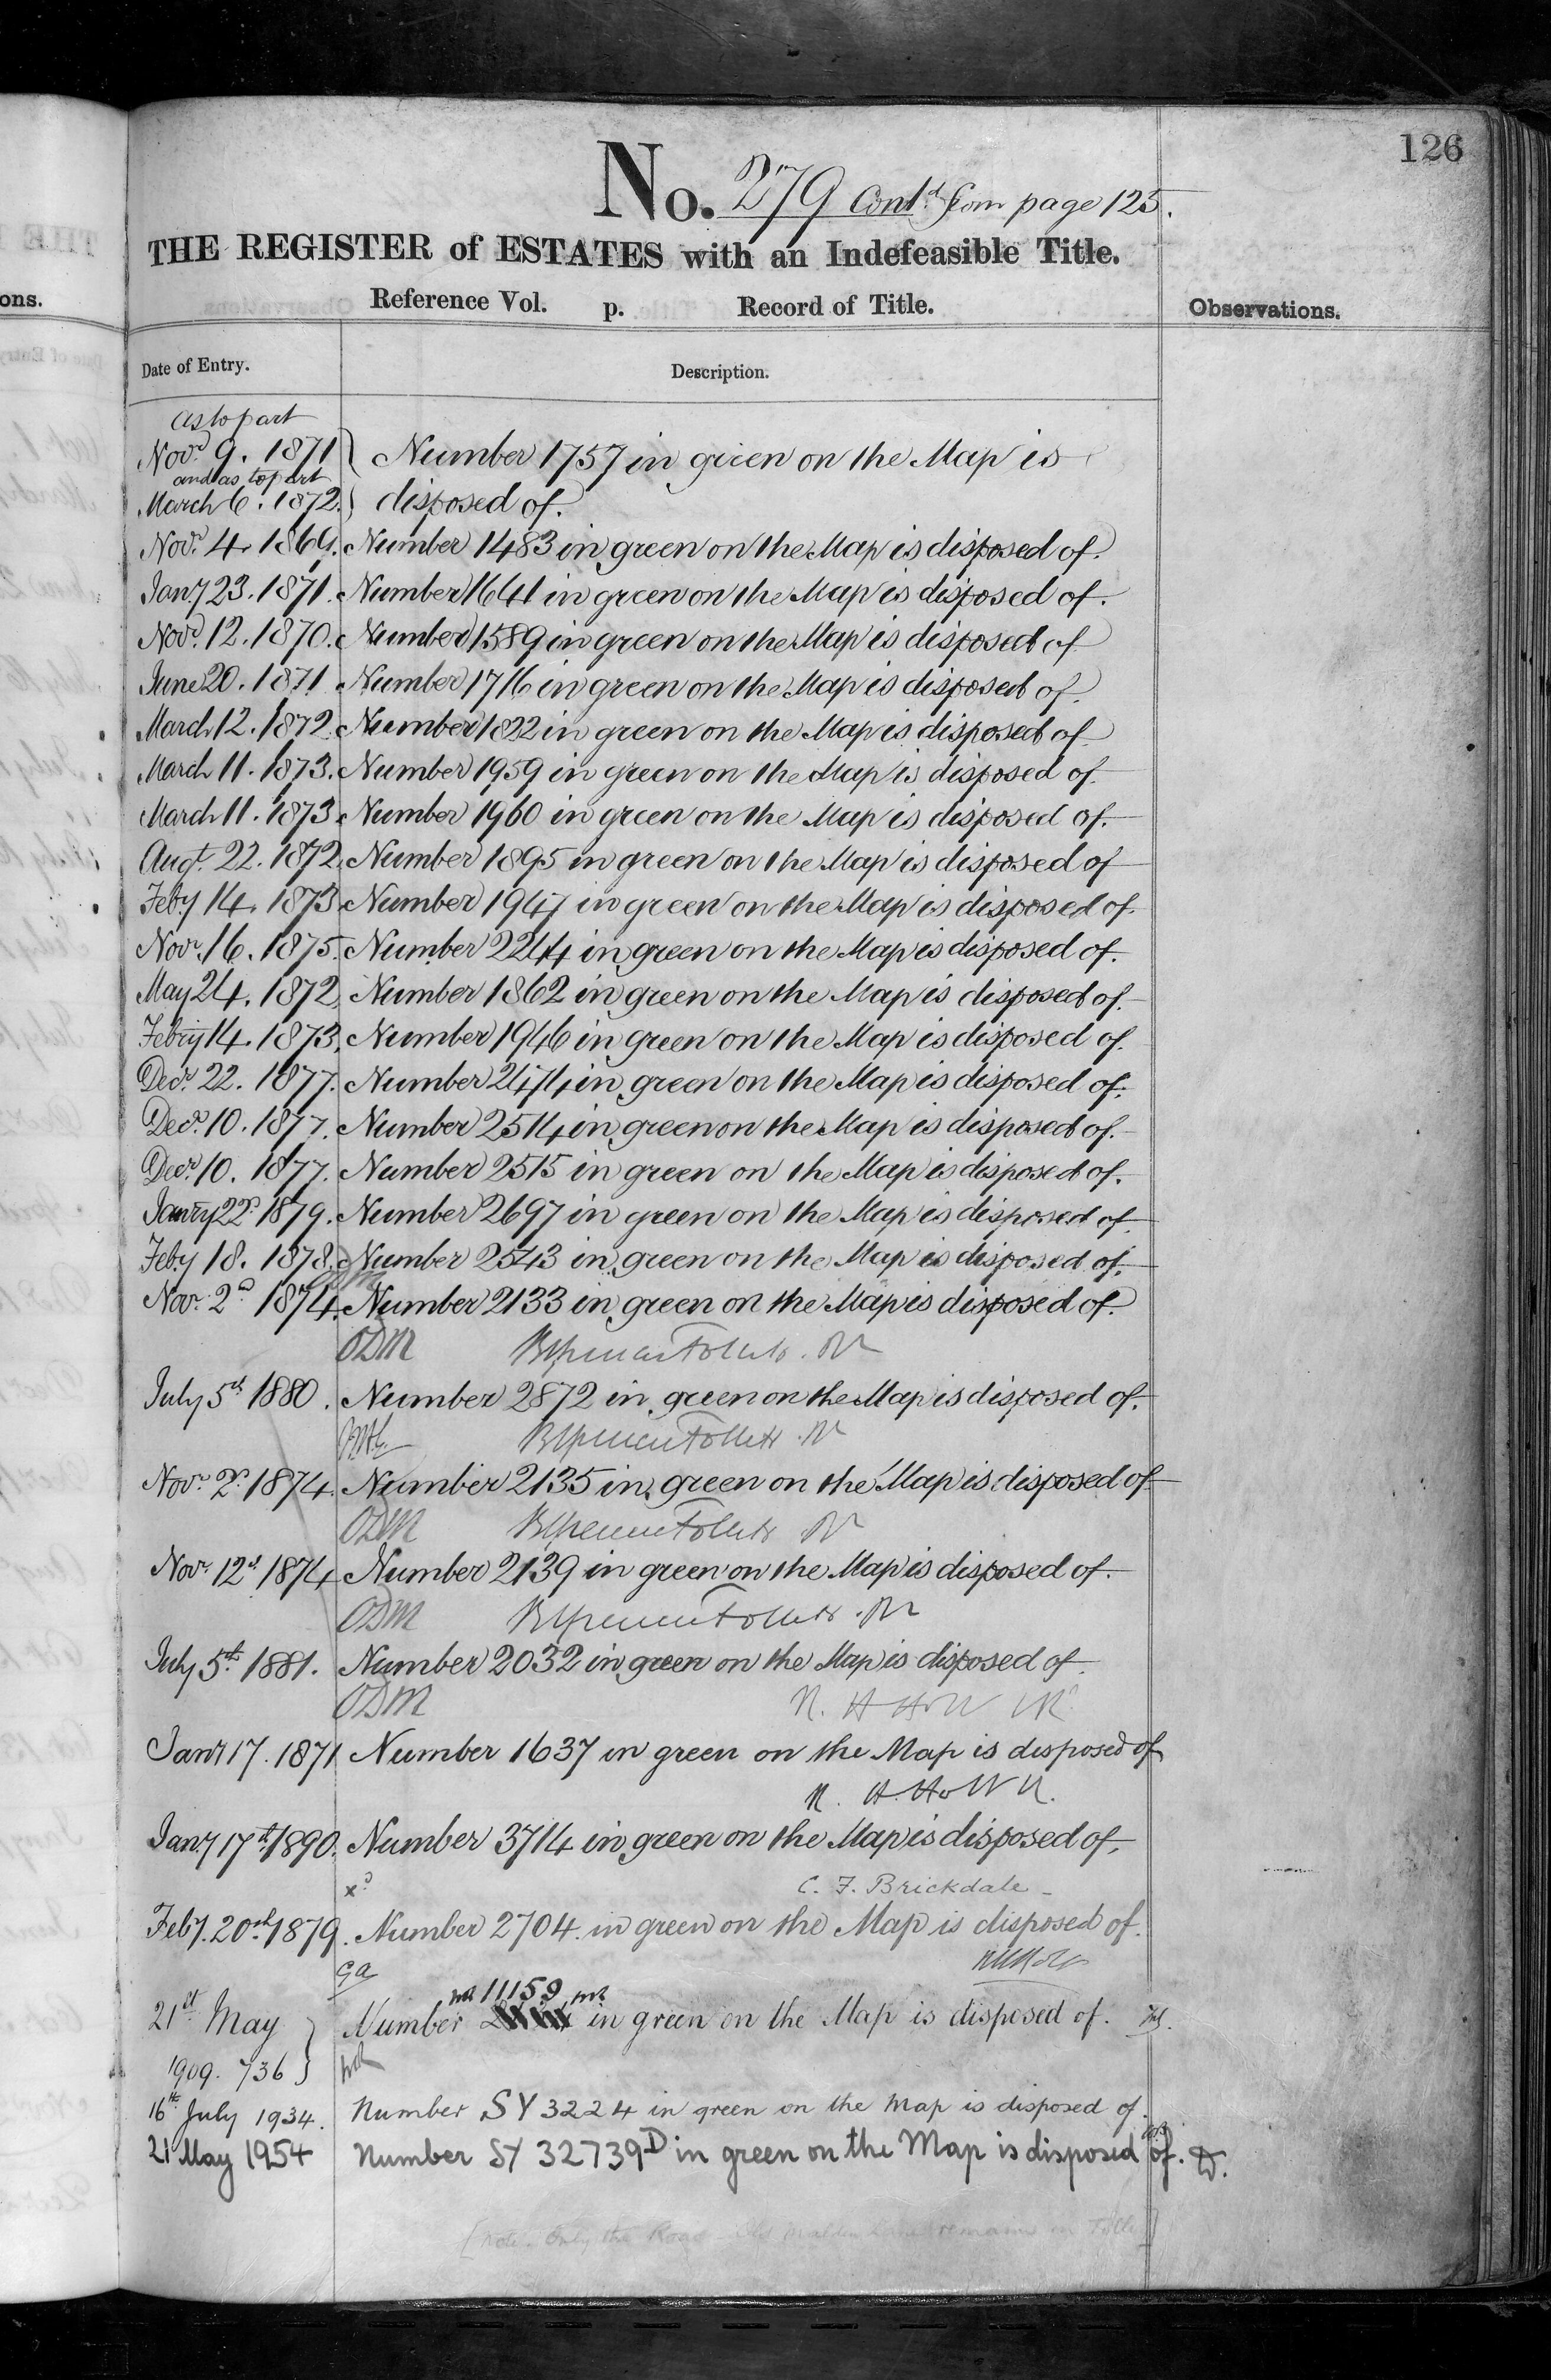 126
No. 279 Contd from page 125.
THE REGISTER of ESTATES with an Indefeasible Title.
Reference Vol. p. Record of Title.
Observations.
ons.
Date of Entry. Description.
As to part
Novr 9. 1871 } Number 1757 in green on the Map is
and as to part
March 6. 1872. } disposed of.
Novr 4. 1869. Number 1483 in green on the Map is disposed of.
Jany 23. 1871. Number 1641 in green on the Map is disposed of.
Novr 12. 1870. Number 1589 in green on the Map is disposed of
June 20. 1871 Number 1716 in green on the Map is disposed of.
March 12. 1872. Number 1822 in green on the Map is disposed of.
March 11. 1873. Number 1959 in green on the Map is disposed of.
March 11. 1873. Number 1960 in green on the Map is disposed of.
Augt. 22. 1872. Number 1895 in green on the Map is disposed of
Feby 14. 1873. Number 1947 in green on the Map is disposed of.
Novr 16. 1875. Number 2244 in green on the Map is disposed of.
May 24. 1872. Number 1862 in green on the Map is disposed of.
Febry 14. 1873. Number 1946 in green on the Map is disposed of.
Decr 22. 1877. Number 2474 in green on the Map is disposed of.
Decr 10. 1877. Number 2514 in green on the Map is disposed of.
Decr 10. 1877. Number 2515 in green on the Map is disposed of.
Janry 22d 1879. Number 2697 in green on the Map is disposed of.
Feby 18. 1878. Number 2543 in green on the Map is disposed of.
Novr 2d 1874. Number 2133 in green on the Map is disposed of.
ODM
July 5th 1880. Number 2872 in green on the Map is disposed of.
Novr 2d 1874. Number 2135 in green on the Map is disposed of
ODM
Novr 12th 1874 Number 2139 in green on the Map is disposed of.
ODM
July 5th 1881. Number 2032 in green on the Map is disposed of.
ODM R. H. Holt
Jany 17. 1871 Number 1637 in green on the Map is disposed of
R. H. Holt
Jany 17th 1890. Number 3714 in green on the Map is disposed of.
C. F. Brickdale
Feby. 20th 1879. Number 2704 in green on the Map is disposed of.
11159
21st May } Number in green on the Map is disposed of.
1909. 736 }
16th July 1934. Number SY 3224 in green on the Map is disposed of.
21 May 1954 Number SY 32739D in green on the Map is disposed of.
[Note. Only the Road - Old Malden Lane remains in Title]